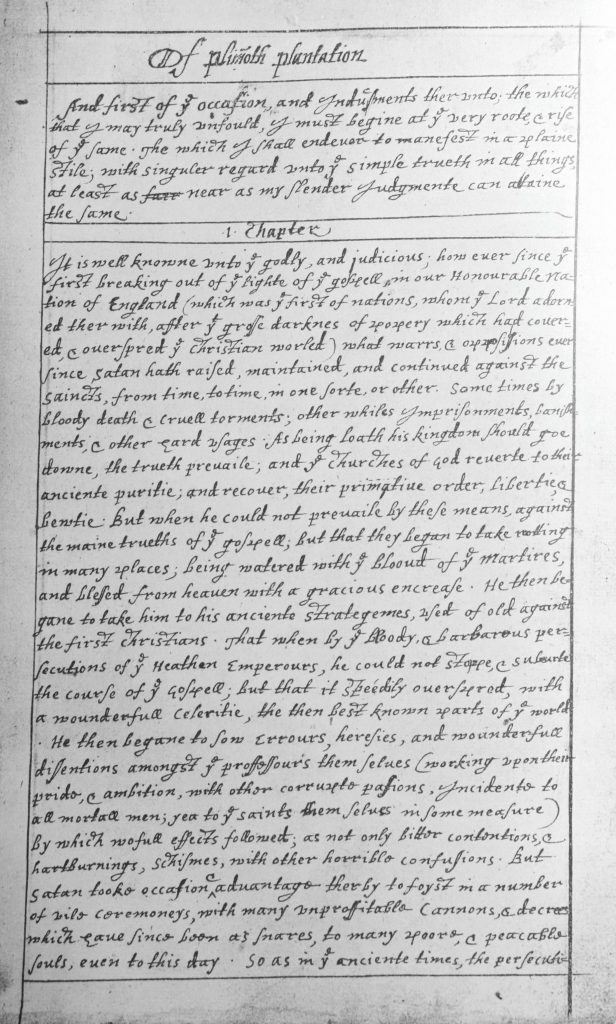 Of plim̃oth plantation
And first of yͤ occasion, and Indusments ther unto; the which
that I may truly unfould, I must begine at yͤ very roote, & rise
of yͤ same. The which I shall endevor to manefest in a plaine
stile; with singuler regard unto yͤ simple trueth in all things,
at least as farr near as my slender Judgmente can attaine
the same.
1. Chapter
It is well knowne unto yͤ godly, and judicious; how ever since yͤ
first breaking out of yͤ lighte of yͤ gospell, in our Honourable Na-
tion of England (which was yͤ first of nations, whom yͤ Lord adorn-
ed ther with, after yͤ grosse darknes of popery which had cover-
ed, & overspred yͤ Christian worled) what warrs, & oppossissions ever
since Satan hath raised, maintained, and continued against the
Saincts, from time, to time, in one sorte, or other. Some times by
bloody death & cruell torments; other whiles Imprisonments, banish-
ments, & other hard usages. As being loath his kingdom should goe
downe, the trueth prevaile; and yͤ Churches of God reverte to their
anciente puritie; and recover, their primative order, libertie, &
bewtie. But when he could not prevaile by these means, against
the maine trueths of yͤ gospell; but that they began to take rotting
in many places; being watered with yͤ bloud of yͤ Martires,
and blesed from heaven with a gracious encrease. He then be-
gane to take him to his anciente strategemes, used of old against
the first Christians. That when by yͤ bloody, & barbarous per-
secutions of yͤ Heathen Emperours, he could not stoppe, & subuerte
the course of yͤ Gospell; but that it speedily overspred, with
a wounderfull celeritie, the then best known parts of yͤ world
. He then begane to sow Errours, heresies, and wounderfull
dissentions amongst yͤ proffessours them selves (working upon their
pride, & ambition, with other corrupte passions, Incidente to
all mortall men; yea to yͤ saints them selves in some measure)
by which wofull effects followed; as not only bitter contentions, &
hartburnings, schismes, with other horrible confusions. But
Satan tooke occasion & advantage therby to foyst in a number
of vile ceremoneys, with many unproffitable Cannons, & decrees
which have since been as snares, to many poore, & peacable
souls, even to this day. So as in yͤ anciente times, the persecuti-